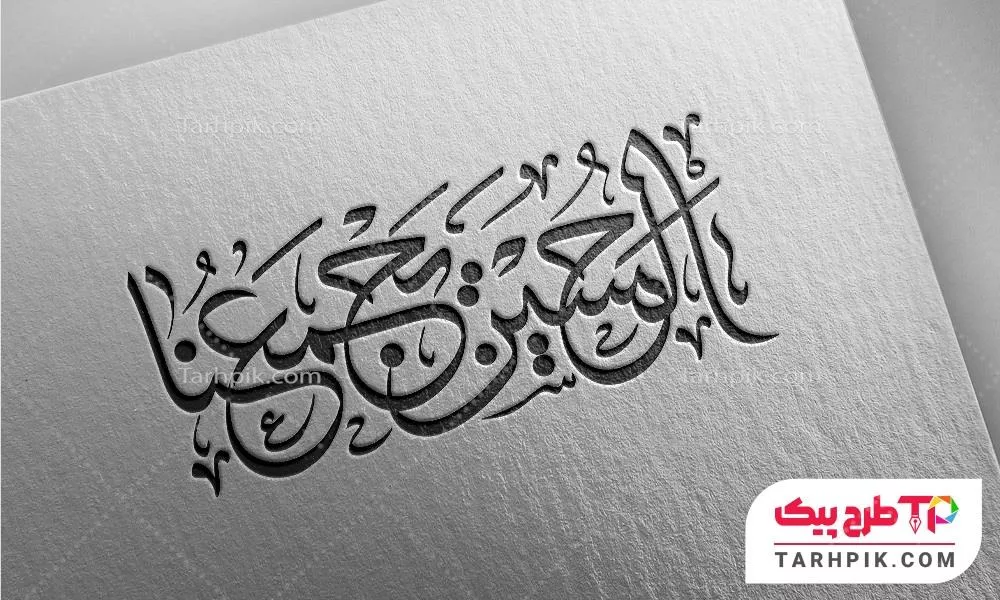 الحُسین یَجمَعُنا
Tarhpik.com Tarhpik.com
Tarhpik.com Tarhpik.com
طرح پیک TP
TARHPIK.COM